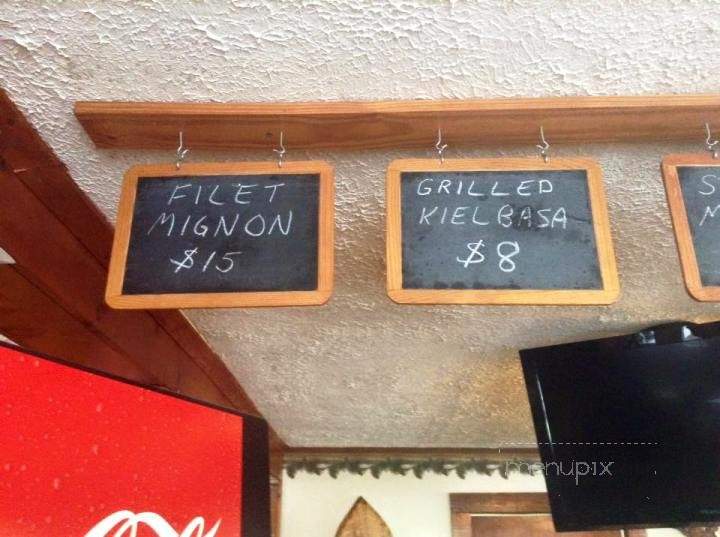 FILET
MIGNON
$15
GRILLED
KIELBASA
$8
menupix